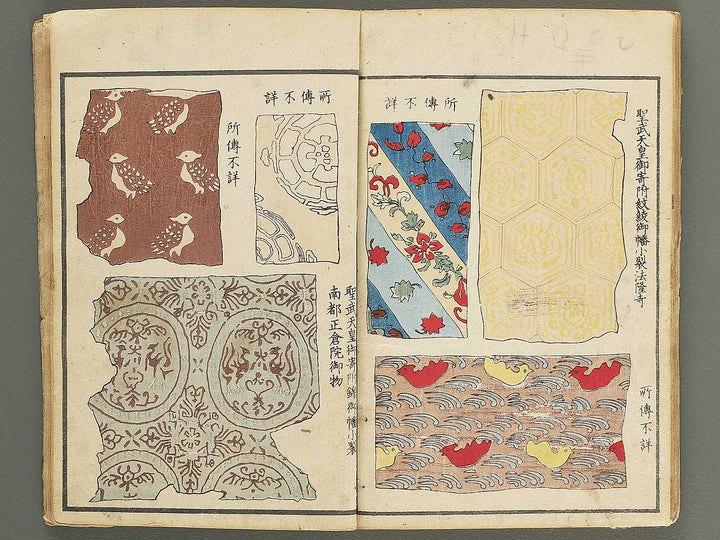 聖武天皇御寄附紋綾御幡小裂法隆寺
所傳不詳
所傳不詳
所傳不詳
所傳不詳
聖武天皇御寄附錦御幡小裂
南都正倉院御物